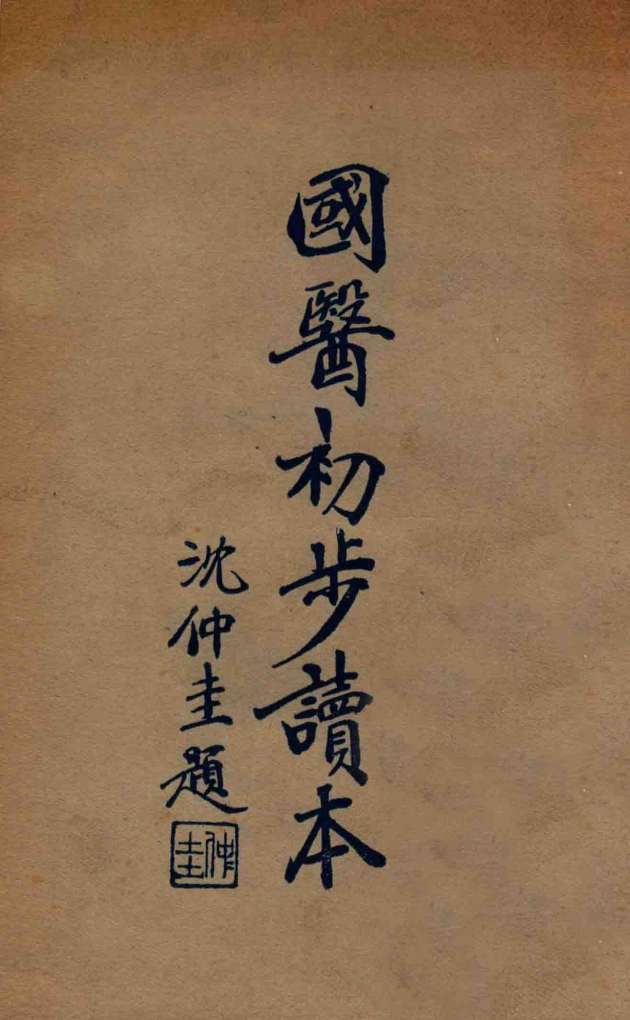 國醫初步讀本
沈仲圭題
仲圭